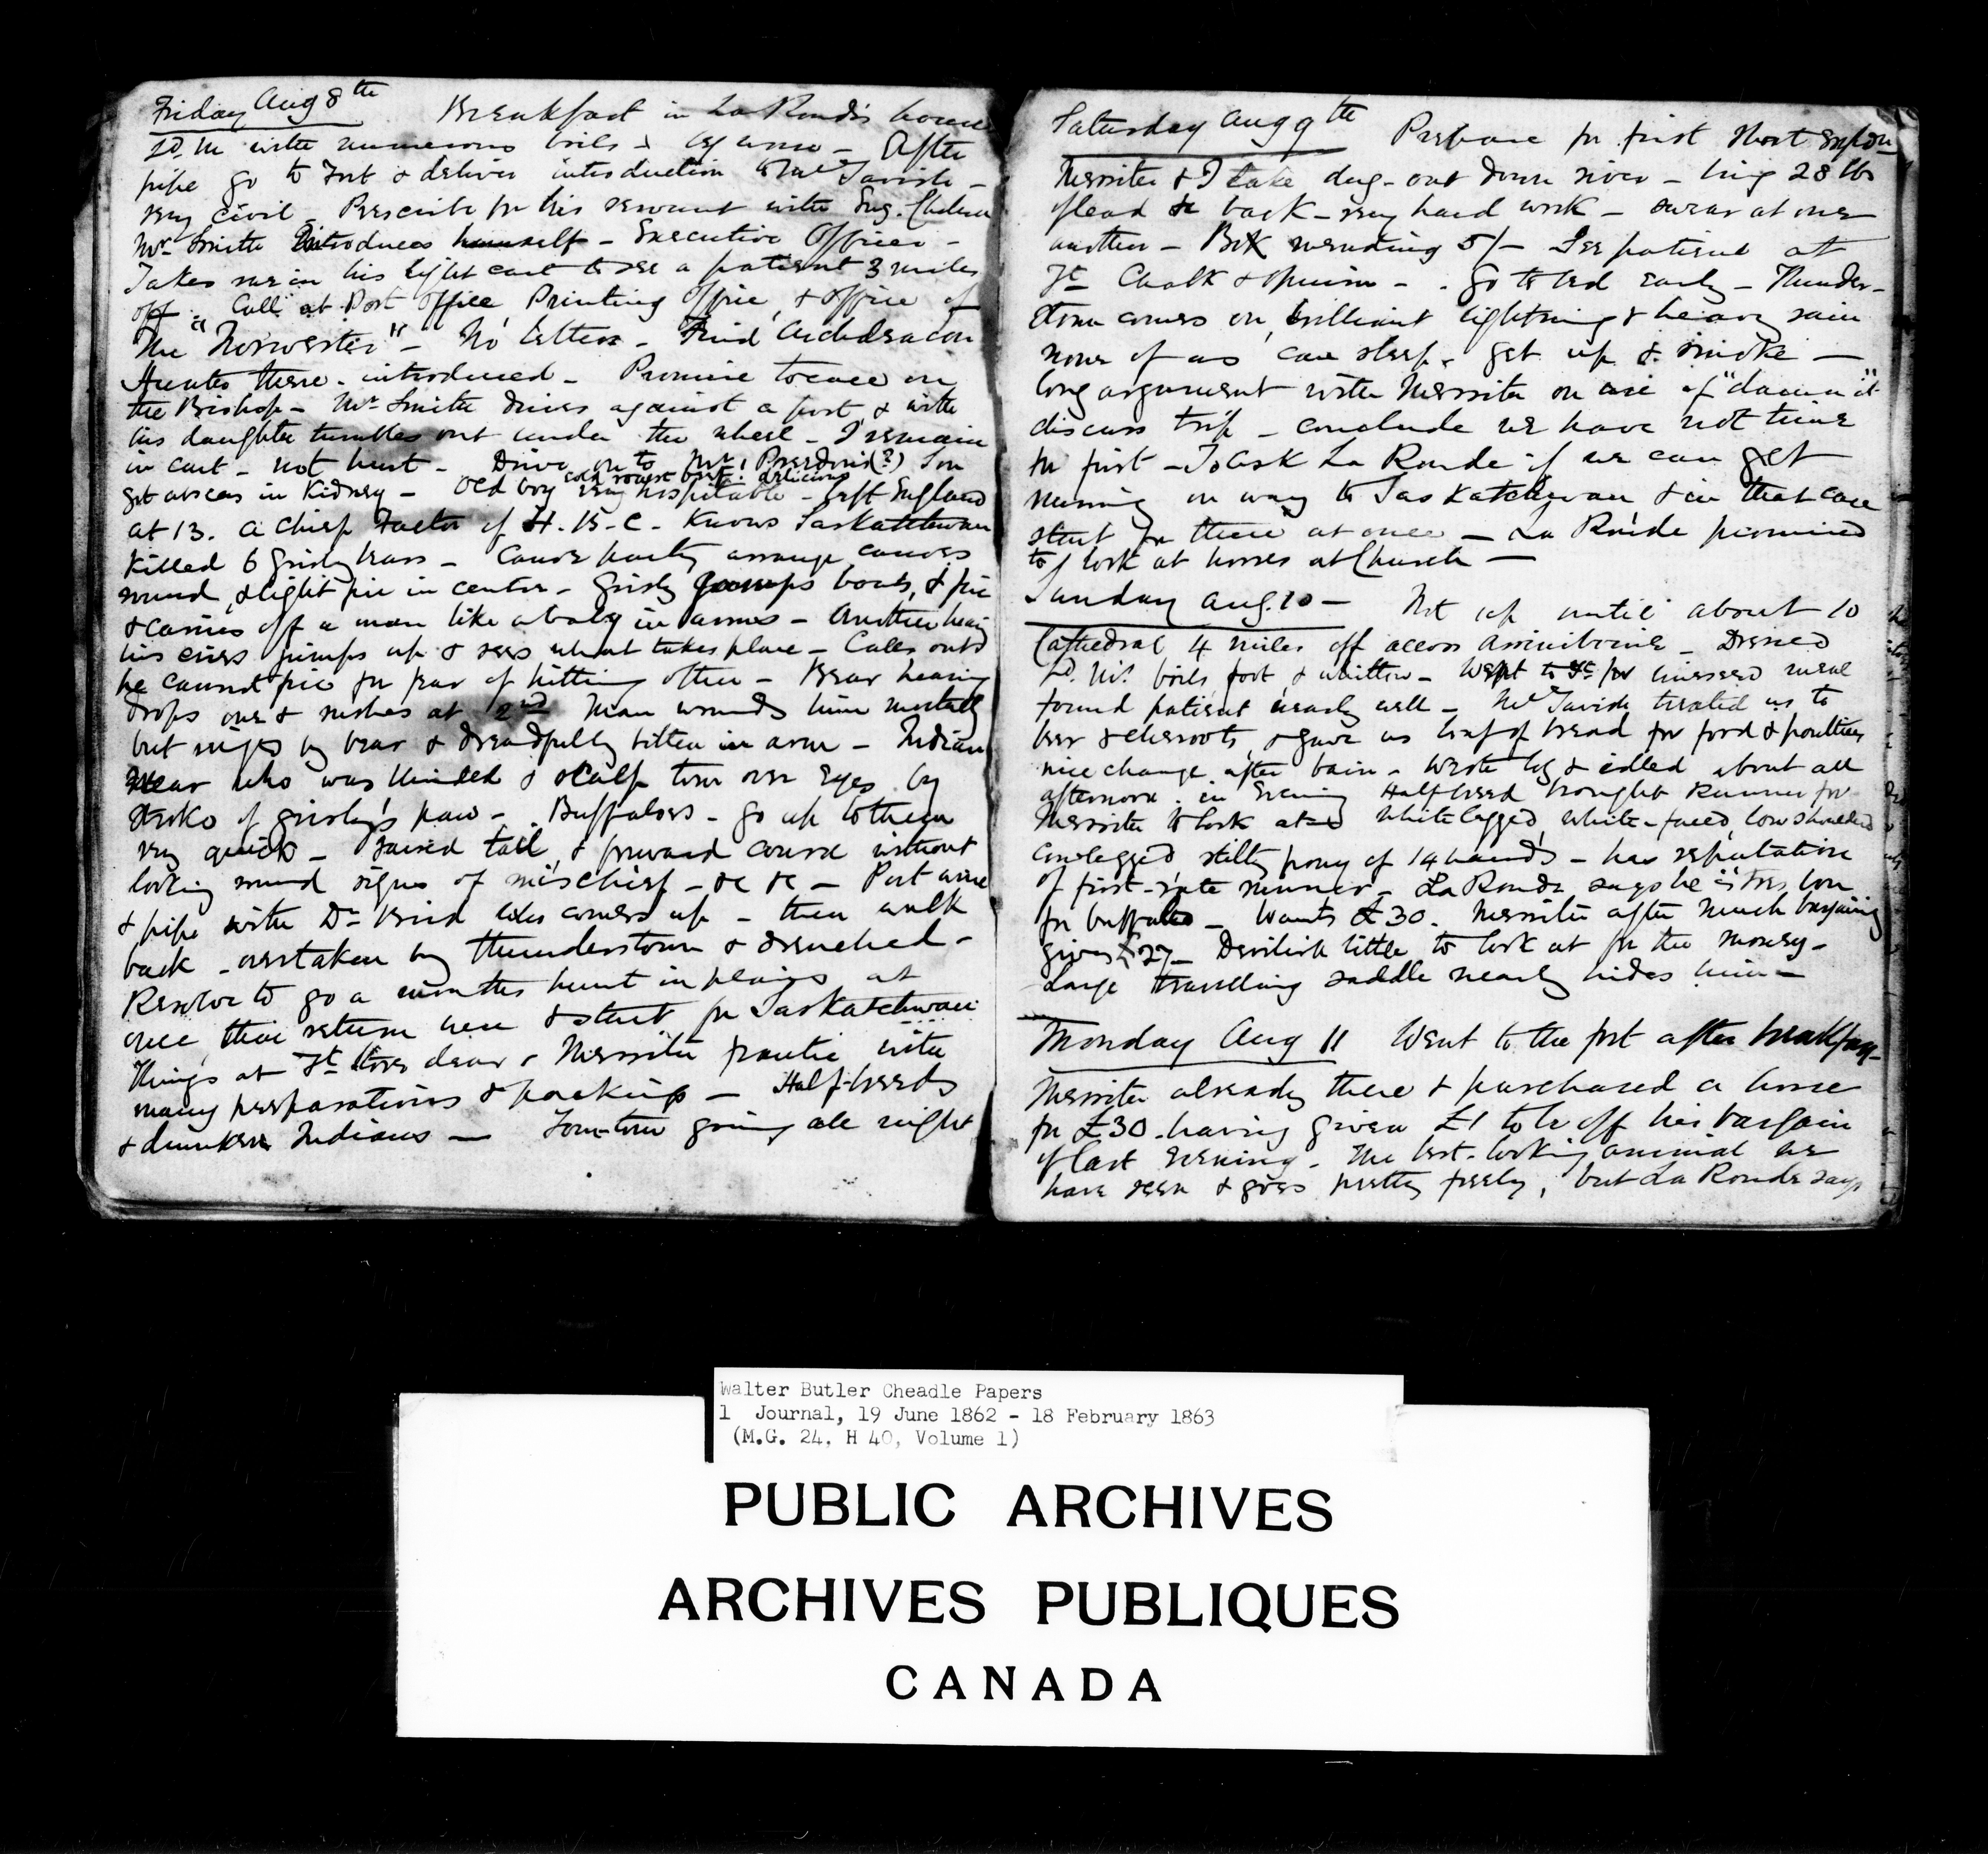 Friday Aug 8th Breakfast in La Ronde's house
Ld. M with numerous boils & - After
pipe go to Fort & deliver introduction to McTavish -
very civil - Prescribe for his servant with Ung.
Mr Smith introduces himself - Executive Officer -
Takes me in his light cart to see a patient 3 miles
off - Call at Post Office, Printing Office, & office of
The "Norwester" - No letters - Find Archdeacon
Hunter there - introduced - Promise to call on
the Bishop - Mr Smith drives against a post & with
his daughter tumbles out under the wheel - I remain
in cart - not hurt - Drive on to Mr (?) Son
cold roast beef! delicious
got abscess in Kidney - Old boy very hospitable - left England
at 13. a Chief Factor of H. B. C. Knows Saskatchewan
Killed 6 grisly bears - Canoe party arrange canoes
round, & light fire in center - Grisly jumps boats, & fire
& carries off a man like a baby in arms - Another hearing
his cries jumps up & sees what takes place - Calls out
he cannot fire for fear of hitting other - Bear hearing
drops one & rushes at 2nd Man wounds him mortally
but by bear & dreadfully bitten in arm - Indian
near who was blinded & scalp torn over Eyes by
stroke of grisly's paw - Buffaloes - go up to them
very quick - raised tail, & forward course without
looking round signs of mischief - &c &c - Port wine
& pipe with Dr Bird who comes up - then walk
back - overtaken by thunderstorm & drenched -
Resolve to go a month's hunt in plains at
once, then return here & start for Saskatchwan
Things at Ft. Stores dear & Messiter frantic with
many preparations & packing - Half-breeds
& drunken Indians - Tom-tom going all night
Saturday Aug 9th Prepare for first short
Messiter & I take dug-out down river - bring 28 lbs
of lead back - very hard work - swear at one
another - mending 5/- See patient at
Ft. Chalk & Opium - go to bed early - Thunder-
storm comes on, brilliant lightning & heavy rain
none of us can sleep. get up & smoke -
long argument with Messiter on use of "damn it"
discuss trip - conclude we have not time
for first - To ask La Ronde if we can get
running on way to Saskatchewan & in that case
start for there at once - La Ronde promised
to look at horses at Church -
Sunday Aug. 10 - Not up until about 10
Cathedral 4 miles off across Assiniboine - Dressed
Ld. M's boils, foot, & whitlow - Went to Ft. for linseed meal
found patient nearly well - McTavish treated us to
beer & cheroots, & gave us loaf of bread for food & poultices
nice change after bain - Wrote log & idled about all
afternoon. in Evening Half-breed brought Runner for
Messiter to look at white legged, white-faced, low shouldered
cowlegged stilty pony of 14 hands - has reputation
of first-rate runner - La Ronde says he is "très bon
for buffalo - Wants £30. Messiter after much bargaining
gives £27 - Devilish little to look at for the money -
Large travelling saddle nearly hides him -
Monday Aug 11 Went to the fort after breakfast
Messiter already there & purchased a horse
for £30. having given £1 to be off his bargain
of last evening. The best-looking animal we
have seen & goes pretty freely, but La Ronde says
Walter Butler Cheadle Papers
1 Journal, 19 June 1862 - 18 February 1863
(M.G. 24, H 40, Volume 1)
PUBLIC ARCHIVES
ARCHIVES PUBLIQUES
CANADA